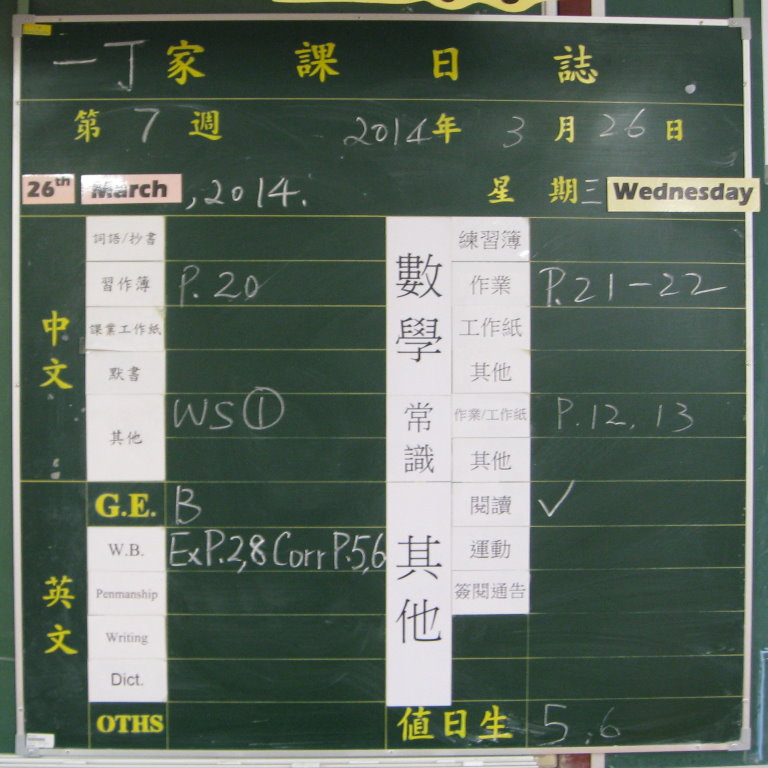 一丁家課日誌
第7週 2014年3月26日
26th March, 2014. 星期三 Wednesday
中文
詞語/抄書
習作簿 P.20
課業工作紙
默書
其他 WS①
英文
G.E. B
W.B. Ex P.2,8 Corr P.5,6
Penmanship
Writing
Dict.
OTHS
數學
練習簿
作業 P.21-22
工作紙
其他
常識
作業/工作紙 P.12, 13
其他
其他
閱讀 ✓
運動
簽閱通告
值日生 5,6